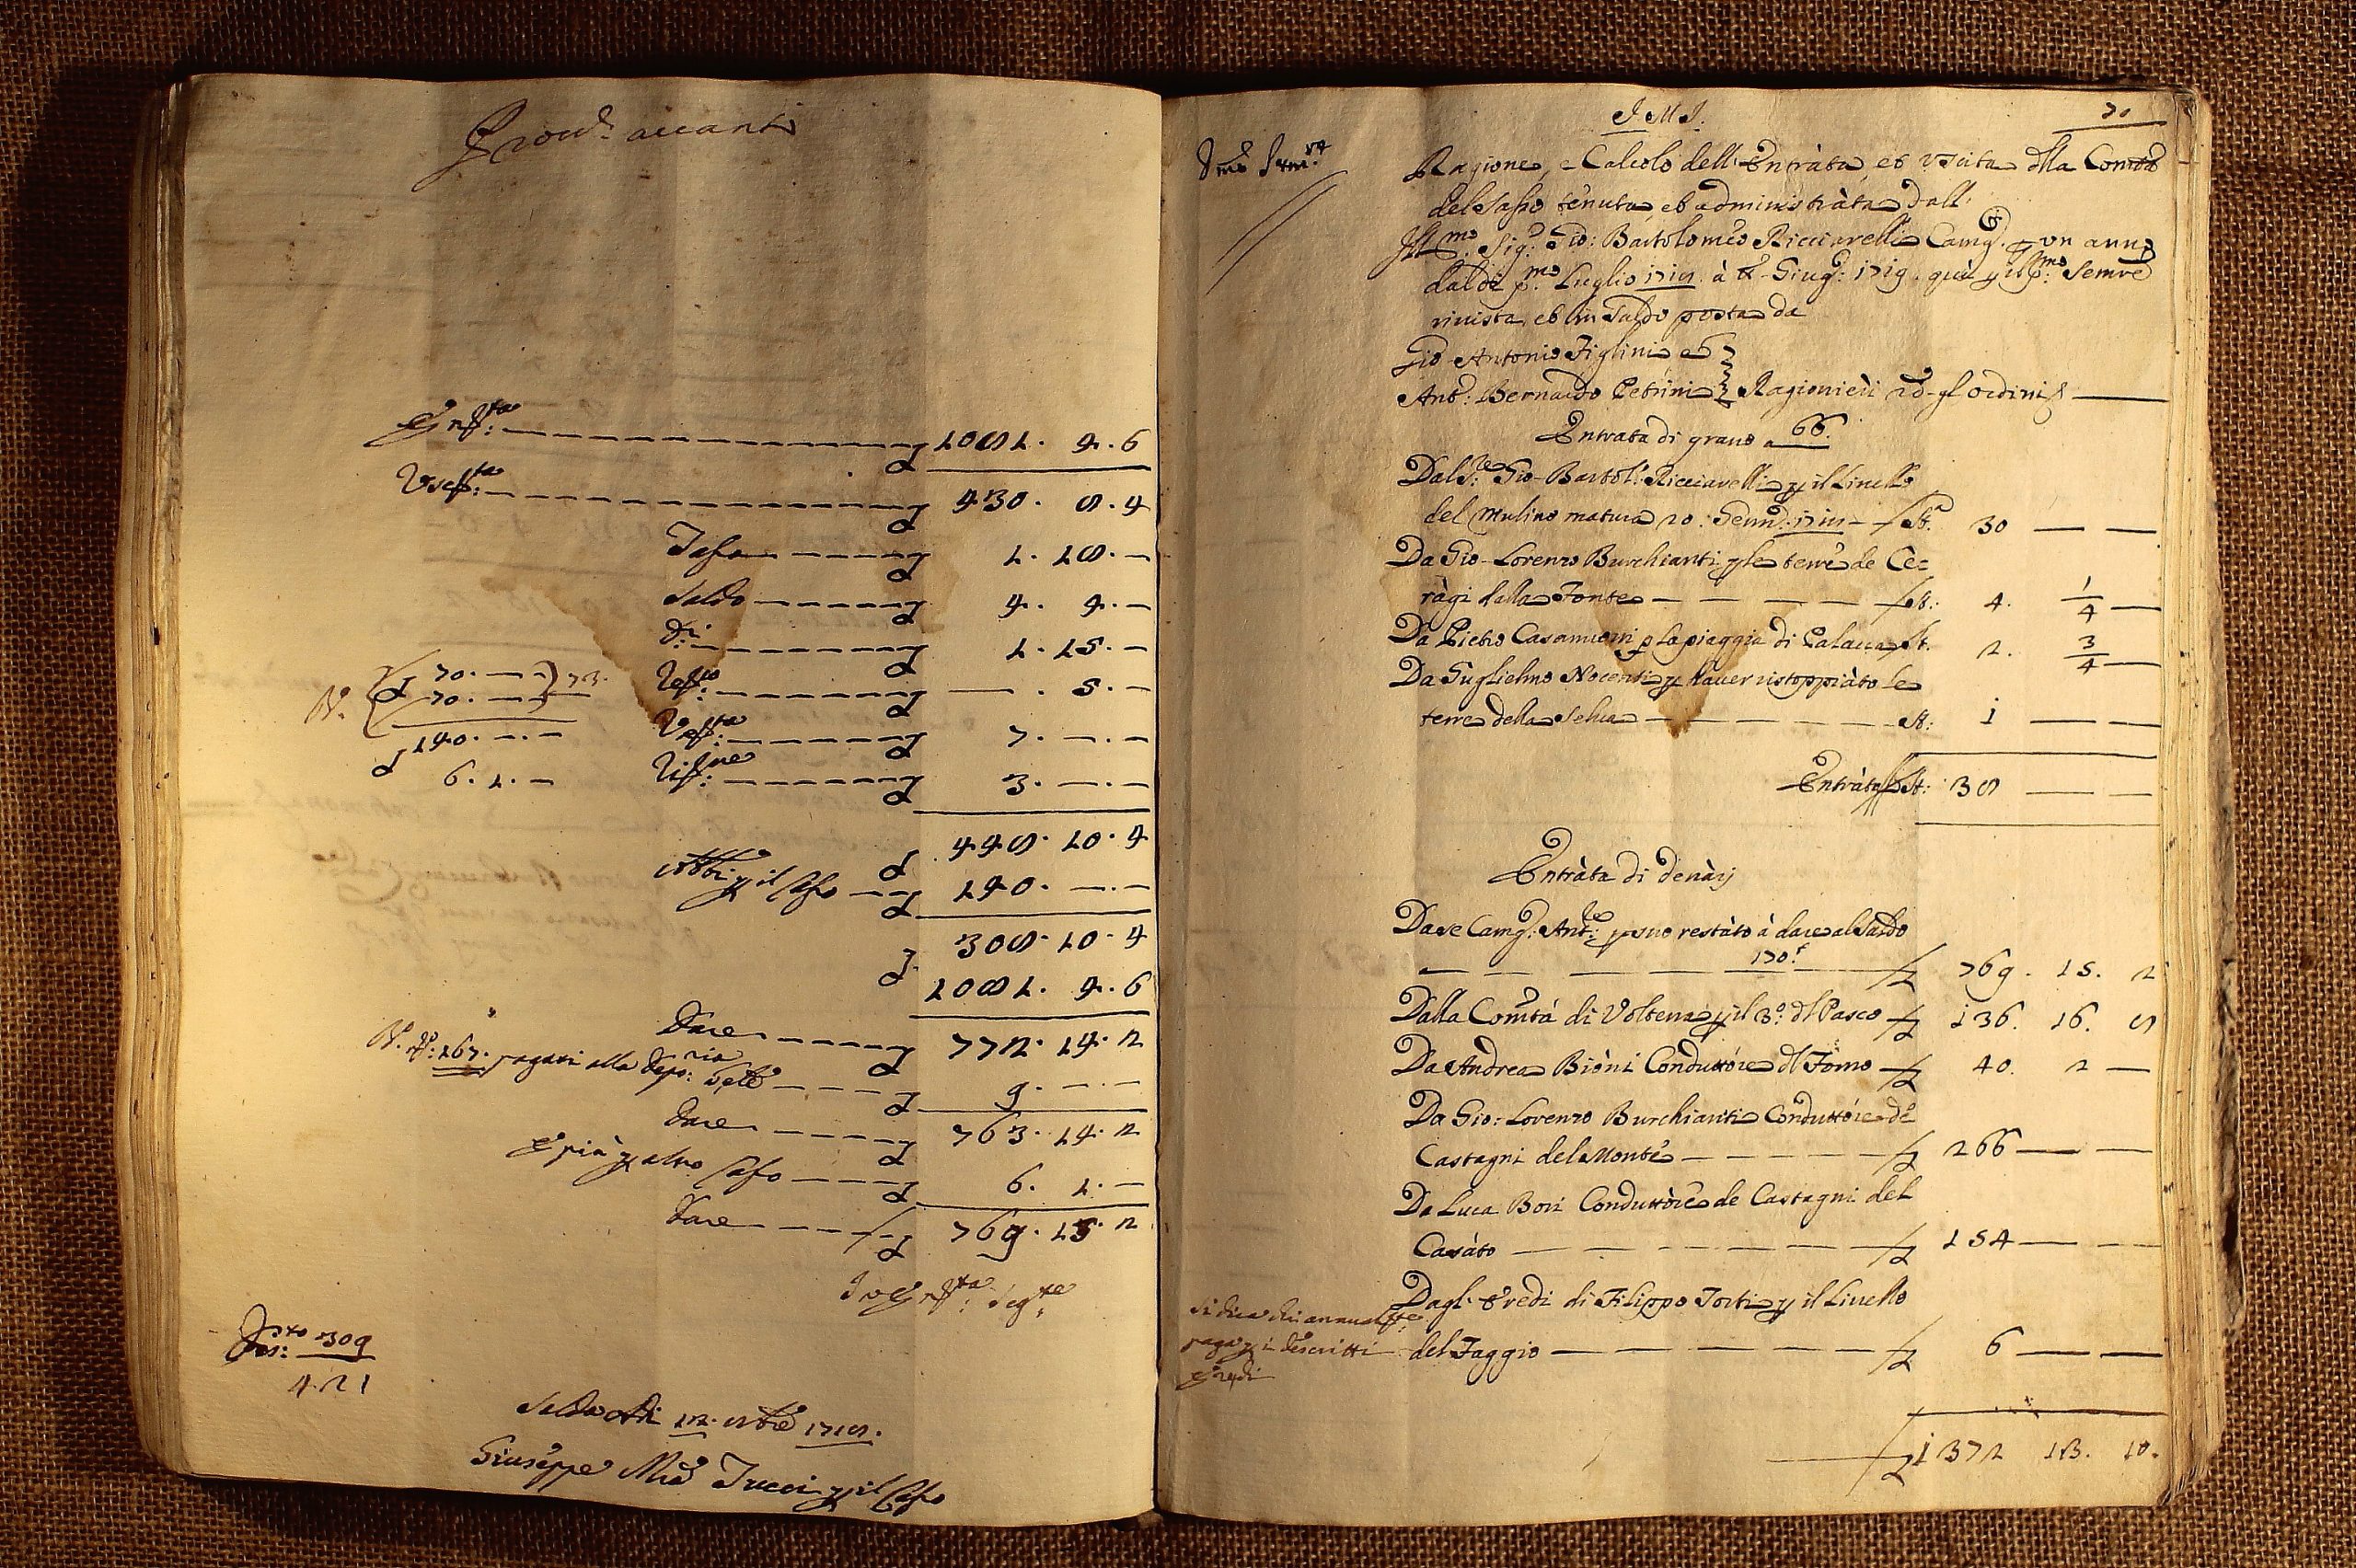 accanti
Entta: 1081. 4. 6
Uscta: 430. 8. 4
Tassa 1. 18. —
Saldo 4. 4. —
Di: 1. 15. —
— . 5. —
7. —. —
3. —. —
N. 70. — — 73.
70. — —
140. —. —
6. 1. —
448. 10. 4
Abbi: p il Casso 140. —. —
308. 10. 4
1081. 4. 6
Dare 772. 14. 2
N. 167. pagati alla Depo:ria
9. —. —
Dare 763. 14. 2
E più p altro Casso 6. 1. —
Dare 769. 15. 2
In Entta: segte:
309
4. 21
Saldo Adi 12. 1718.
Giuseppe Ma Tucci p il Casso
J M J. 70
Ragione, e Calcolo dell'Entràta, et Uscita dlla Comtà
del Sasso tenuta, et administràta dall'
Illmo: Sig: Gio: Bartolomeo Ricciarelli Camg: p un anno
dal dì pmo: Luglio 1718. à tt: Giug: 1719.
rivista, et in Saldo posta da
Gio Antonio Figlini, et
Anto: Bernardo Petrini Ragionièri
Entrata di grano a 66.
Dal Sre: Gio-Bartol: Ricciarelli p il Livello
del Mulino matura 20: Genno: St: 30 — —
Da Gio-Lorenzo Burchianti p le terre de Ce=
ràgi dalla Fonte St: 4. 1/4 —
Da Pietro Casamioni p la piaggia di St. 2. 3/4 —
Da Guglielmo Nocenti p haver ristoppiàto le
terre della Selva St: 1 — —
Entràta St: 38 — —
Entràta di denàrj
Dare Camg: Ante: p suo restàto à dare al Saldo
170: 769. 15. 2
Dalla Comtà di Volterra p il 3o: dl Pasco 136. 16. 8
Da Andrea Bioni Conduttòre dl Forno 40. 2 —
Da Gio: Lorenzo Burchianti Conduttòre de
Castagni del Monte 266 — —
Da Luca Bori Conduttòre de Castagni del
Casàto 154 — —
Dagl' Eredi di Filippo Torti p il Livello
del Faggio 6 — —
Si dica chi annualmte:
paga p i descritti
Eredi
1372 13. 10.